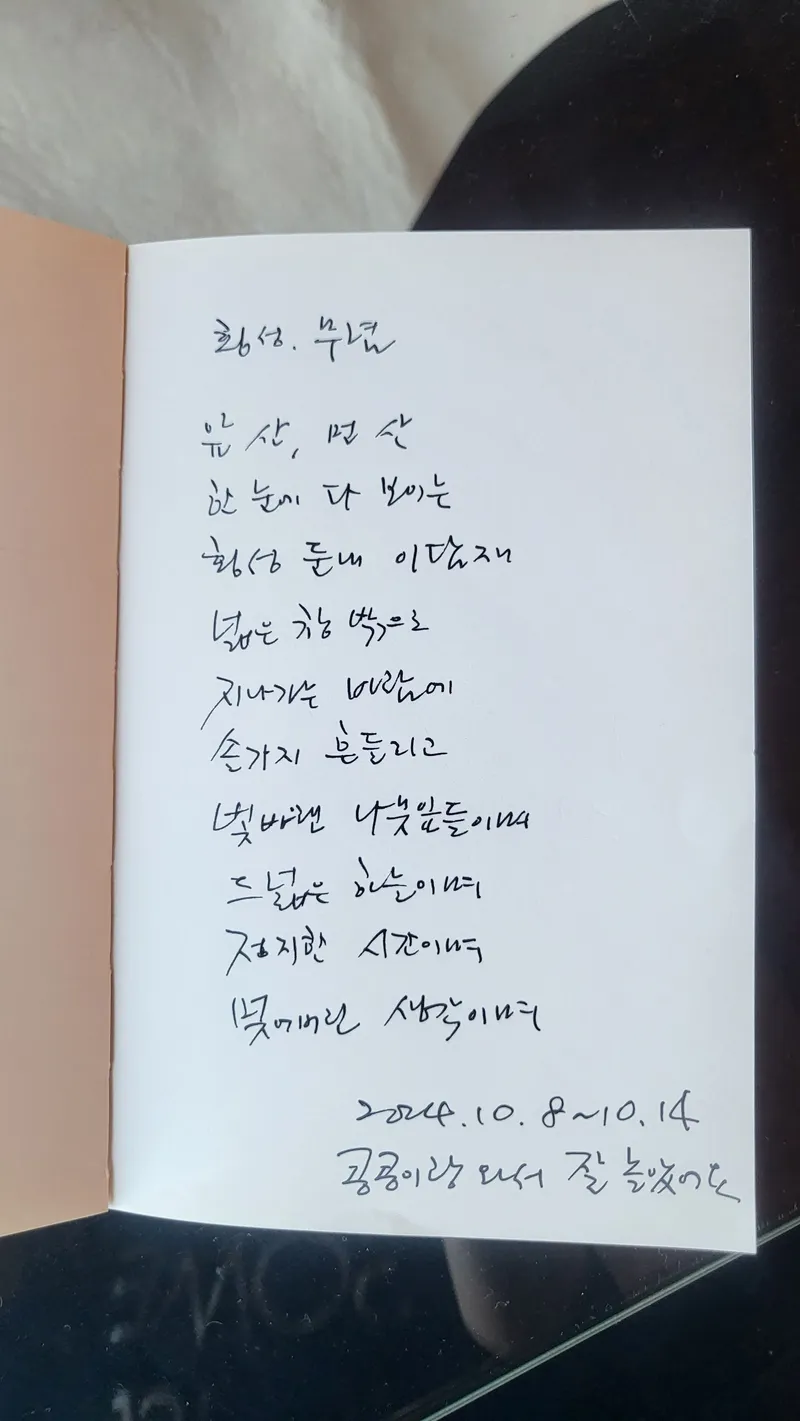 횡성. 무렵
앞 산, 먼 산
한 눈에 다 보이는
횡성 둔내 이담재
넓은 창 밖으로
지나가는 바람에
손가지 흔들리고
빛바랜 나뭇잎들이며
드넓은 하늘이며
정지한 시간이며
멎어버린 생각이며
2024.10. 8~10.14
콩콩이랑 와서 잘 놀았어요